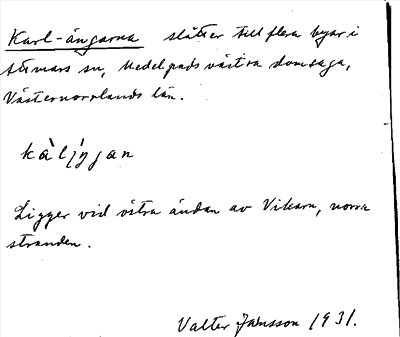 Karl-ängarna slåtter till flera byar i
Attmars sn, Medelpads västra domsaga,
Västernorrlands län.
kàlı̨ŋan
Ligger vid östra ändan av Vikarn, norra
stranden.
Valter Jansson 1931.